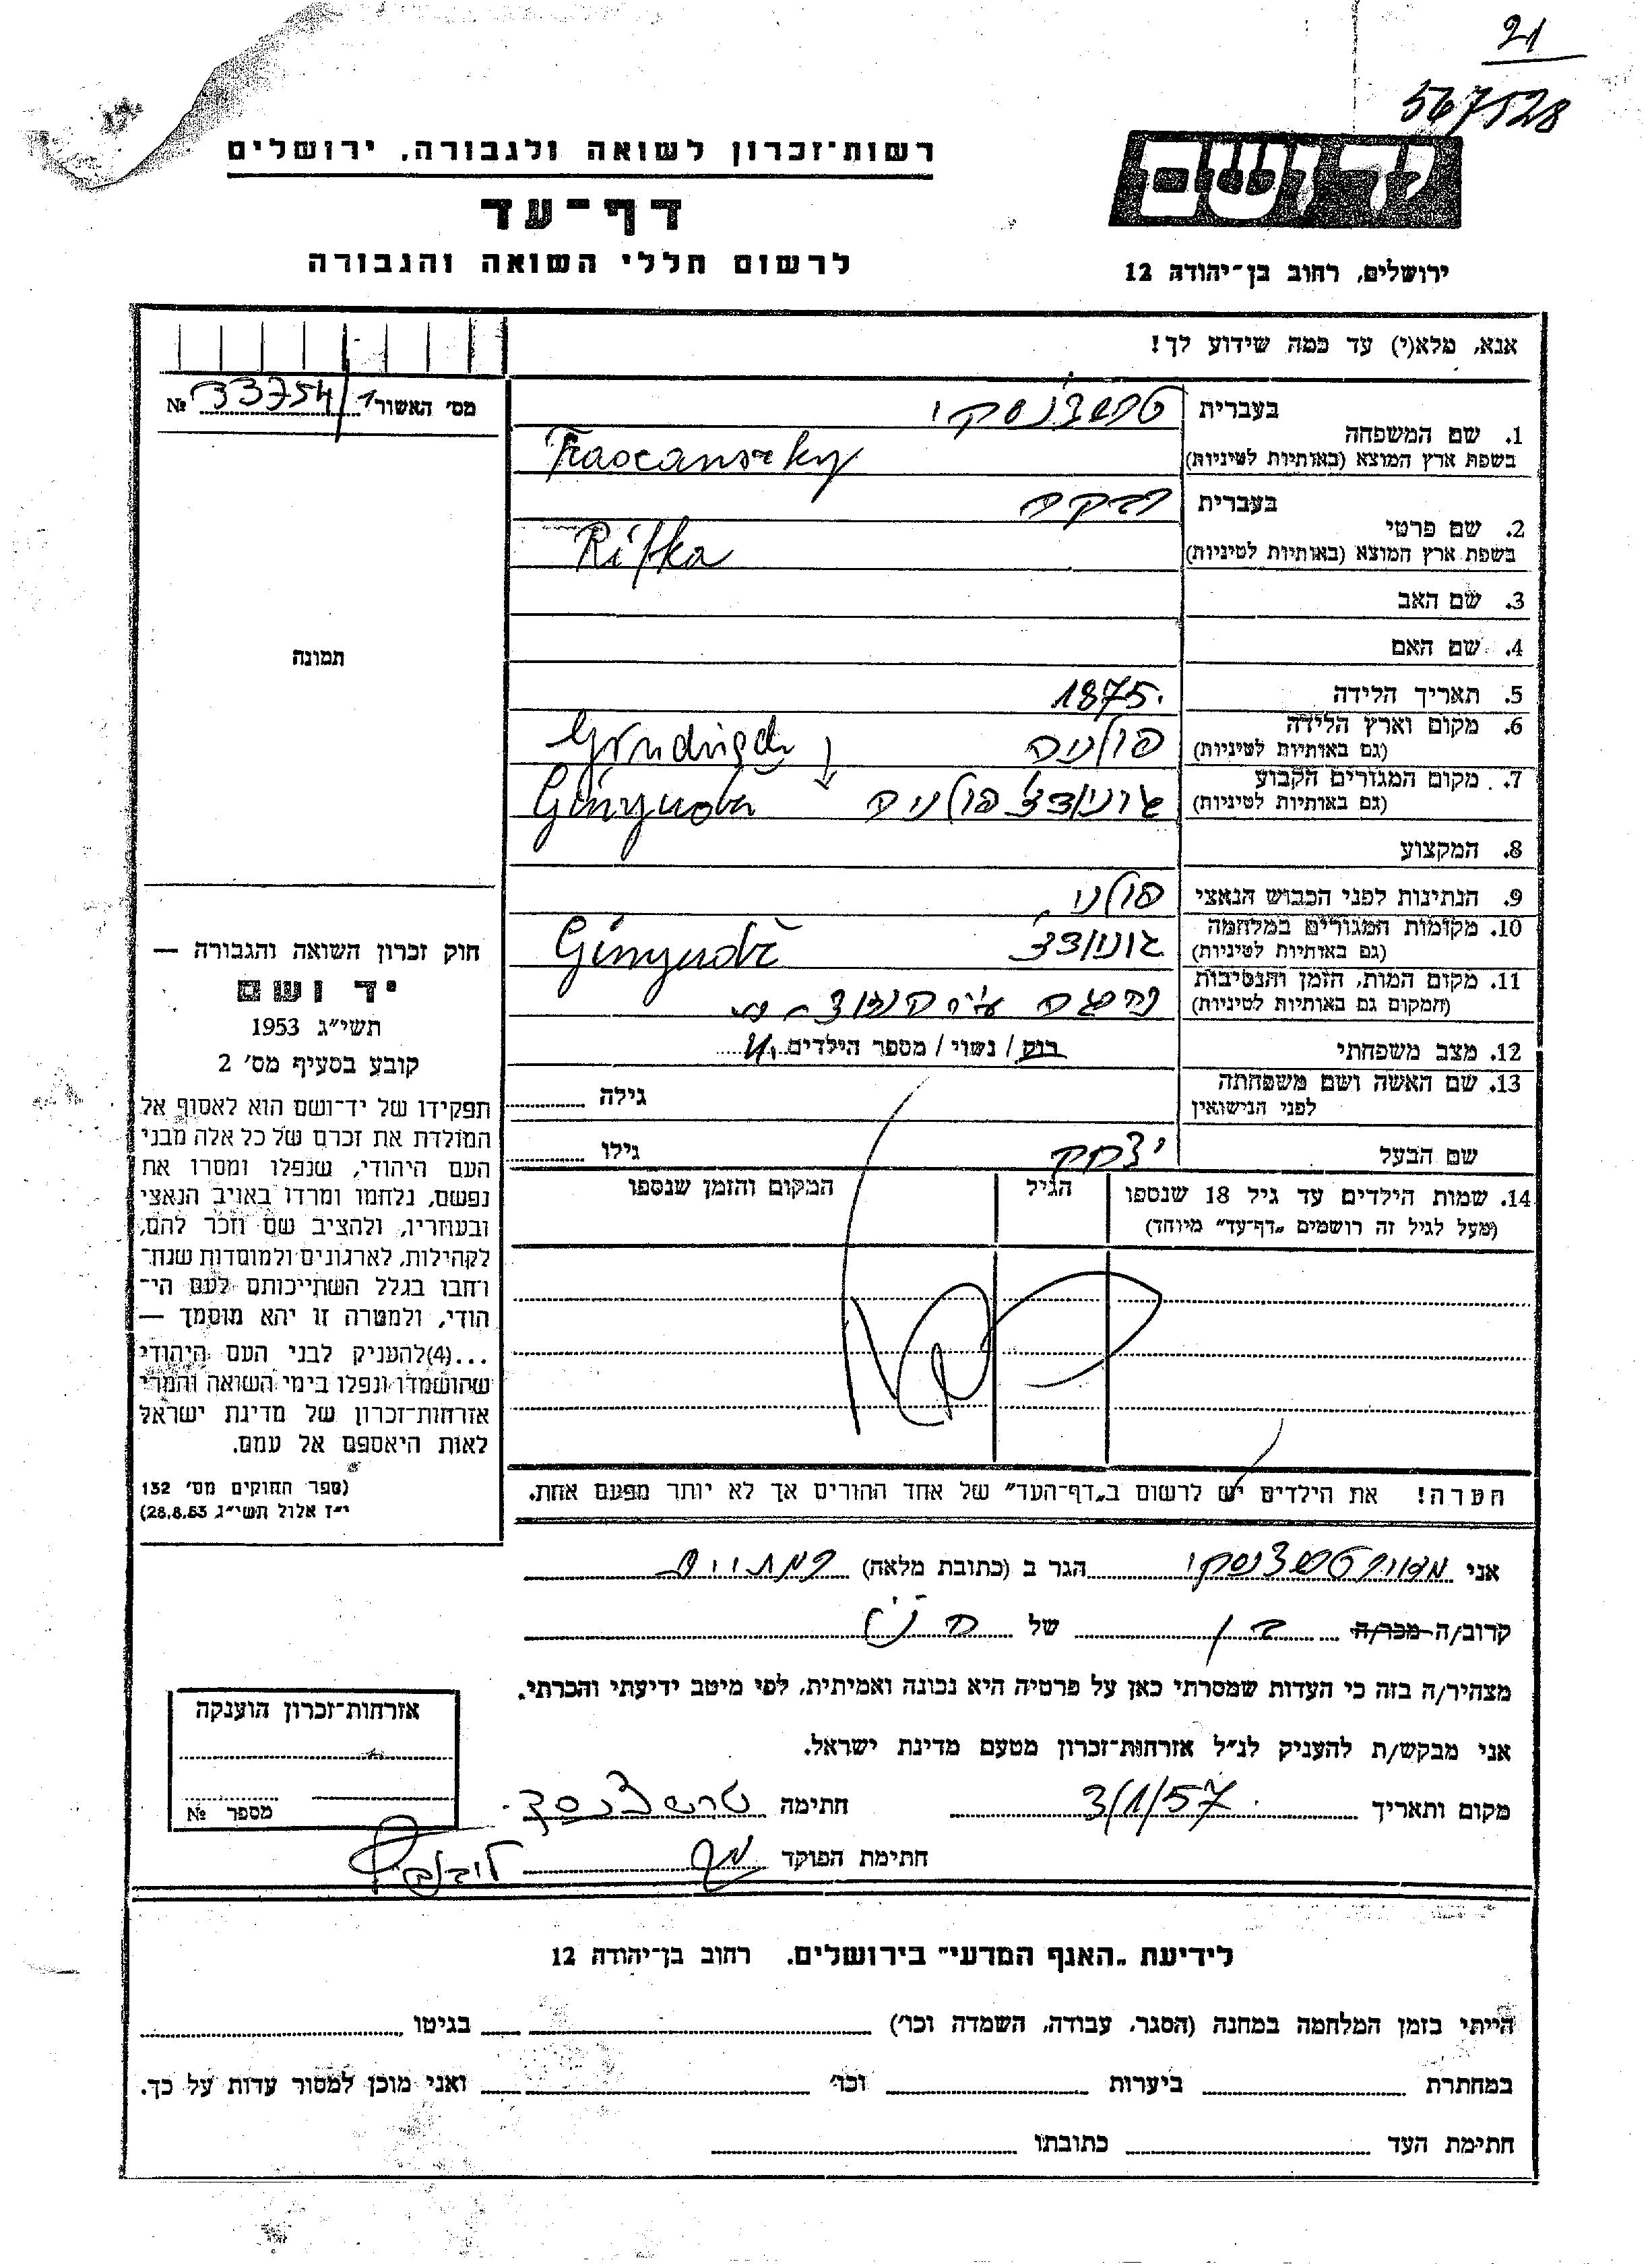 21
567528
יד ושם
רשות־זכרון לשואה ולגבורה, ירושלים
דף־עד
לרשום חללי השואה והגבורה
ירושלים, רחוב בן־יהודה 12
אנא, מלא(י) עד כמה שידוע לך!
מס' האשור 33754/1 №
1. שם המשפחה בעברית
בשפת ארץ המוצא (באותיות לטיניות)
2. שם פרטי בעברית רבקה
בשפת ארץ המוצא (באותיות לטיניות) Rifka
3. שם האב
4. שם האם
5. תאריך הלידה 1875.
6. מקום וארץ הלידה פולניה
(גם באותיות לטיניות)
7. מקום המגורים הקבוע פולניה
(גם באותיות לטיניות)
8. המקצוע
9. הנתינות לפני הכבוש הנאצי פולני
10. מקומות המגורים במלחמה
(גם באותיות לטיניות)
11. מקום המות, הזמן והנסיבות
(המקום גם באותיות לטיניות)
12. מצב משפחתי רווק / נשוי / מספר הילדים
13. שם האשה ושם משפחתה גילה
לפני הנישואין
שם הבעל יצחק גילו
14. שמות הילדים עד גיל 18 שנספו הגיל המקום והזמן שנספו
(מעל לגיל זה רושמים „דף־עד" מיוחד)
הערה! את הילדים יש לרשום ב„דף־העד" של אחד ההורים אך לא יותר מפעם אחת.
תמונה
חוק זכרון השואה והגבורה —
יד ושם
תשי"ג 1953
קובע בסעיף מס' 2
תפקידו של יד־ושם הוא לאסוף אל
המולדת את זכרם של כל אלה מבני
העם היהודי, שנפלו ומסרו את
נפשם, נלחמו ומרדו באויב הנאצי
ובעוזריו, ולהציב שם וזכר להם,
לקהילות, לארגונים ולמוסדות שנח־
רחבו בגלל השתייכותם לעם הי־
הודי, ולמטרה זו יהא מוסמך —
...(4)להעניק לבני העם היהודי
שהושמדו ונפלו בימי השואה והמרי
אזרחות־זכרון של מדינת ישראל
לאות היאספם אל עמם.
(ספר החוקים מס' 132
י"ז אלול תשי"ג 28.8.53)
אני הגר ב (כתובת מלאה)
קרוב/ה מכר/ה בן של
מצהיר/ה בזה כי העדות שמסרתי כאן על פרטיה היא נכונה ואמיתית, לפי מיטב ידיעתי והכרתי.
אני מבקש/ת להעניק לנ"ל אזרחות־זכרון מטעם מדינת ישראל.
מקום ותאריך 3/1/57 חתימה
חתימת הפוקד
אזרחות־זכרון הוענקה
מספר №
לידיעת „האגף המדעי" בירושלים. רחוב בן־יהודה 12
הייתי בזמן המלחמה במחנה (הסגר, עבודה, השמדה וכו') בגיטו
במחתרת ביערות וכו' ואני מוכן למסור עדות על כך.
חתימת העד כתובתו